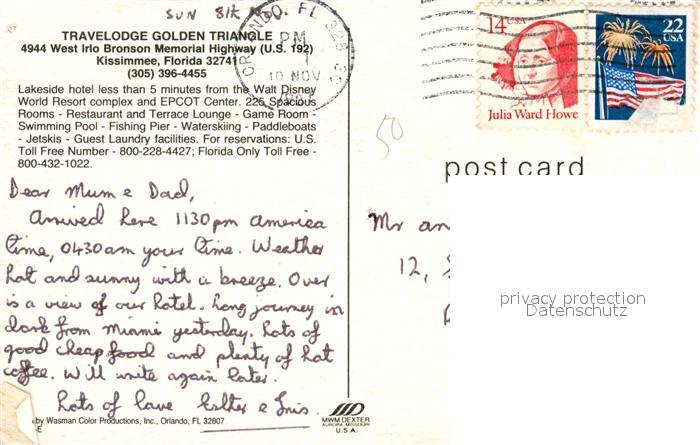 SUN 8th Nov.
TRAVELODGE GOLDEN TRIANGLE
4944 West Irlo Bronson Memorial Highway (U.S. 192)
Kissimmee, Florida 32741
(305) 396-4455
Lakeside hotel less than 5 minutes from the Walt Disney
World Resort complex and EPCOT Center. 225 Spacious
Rooms - Restaurant and Terrace Lounge - Game Room -
Swimming Pool - Fishing Pier - Waterskiing - Paddleboats
- Jetskis - Guest Laundry facilities. For reservations: U.S.
Toll Free Number - 800-228-4427; Florida Only Toll Free -
800-432-1022.
Dear Mum & Dad,
Arrived here 1130pm America
time, 0430am your time. Weather
hot and sunny with a breeze. Over
is a view of our hotel. Long journey in
dark from Miami yesterday. Lots of
good cheap food and plenty of hot
coffee. Will write again later.
Lots of love Esther & Inis.
by Wasman Color Productions, Inc., Orlando, FL 32807
E
MWM DEXTER
AURORA MISSOURI
U.S.A.
ORLANDO, FL 328
PM
10 NOV
14 USA
Julia Ward Howe
22
USA
50
post card
Mr an
12,
privacy protection
Datenschutz